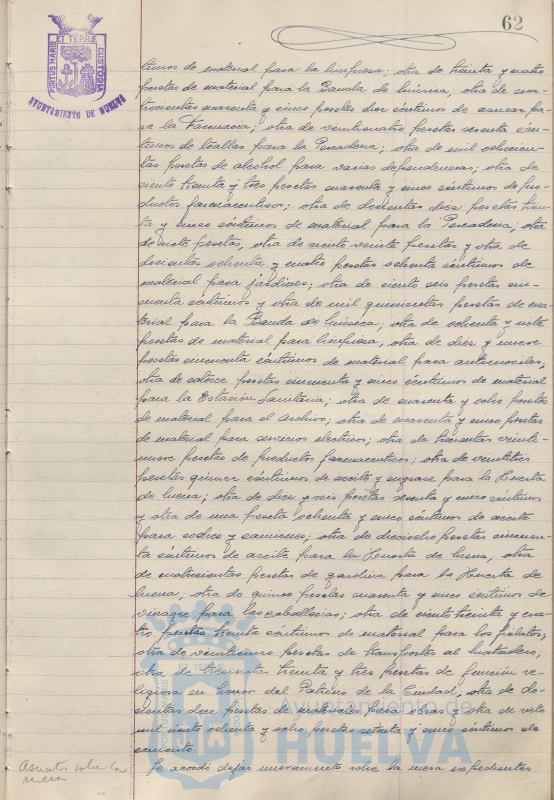 62
PORTUS MARIS ET TERRAE CUSTODIA
AYUNTAMIENTO DE HUELVA
timos de material para la limpieza; otra de treinta y cuatro
pesetas de material para la Banda de música, otra de cua-
trocientas cuarenta y cinco pesetas dos céntimos de azucar pa-
ra la Farmacia; otra de veinticuatro pesetas sesenta cén-
timos de toallas para la Pescaderia; otra de mil ochocien-
tas pesetas de alcohol para varias dependencias; otra de
ciento treinta y tres pesetas cuarenta y cinco céntimos de pro-
ductos farmacéuticos; otra de doscientas diez pesetas trein-
ta y cinco céntimos de material para la Pescaderia, otra
de siete pesetas, otra de ciento veinte pesetas y otra de
doscientas ochenta y cuatro pesetas ochenta céntimos de
material para jardines; otra de ciento seis pesetas cin-
cuenta céntimos y otra de mil quinientas pesetas de ma-
terial para la Banda de música; otra de ochenta y siete
pesetas de material para limpieza, otra de diez y nueve
pesetas cincuenta céntimos de material para automoviles,
otra de catorce pesetas cincuenta y cinco céntimos de material
para la Estación Sanitaria; otra de cuarenta y ocho pesetas
de material para el Archivo; otra de cuarenta y cinco pesetas
de material para servicios electricos; otra de trescientas veinti-
nueve pesetas de productos farmaceuticos; otra de veintitres
pesetas quince céntimos de aceite y engrase para la Huerta
de Mena; otra de diez y seis pesetas sesenta y cinco céntimos
y otra de una peseta ochenta y cinco céntimos de aceite
para coches y camiones, otra de dieciocho pesetas cincuen-
ta céntimos de aceite para la Huerta de Mena, otra
de cuatrocientas pesetas de gasolina para la Huerta de
Mena; otra de quince pesetas cuarenta y cinco céntimos de
vinagre para las caballerias; otra de ciento treinta y cua-
tro pesetas treinta céntimos de material para los fielatos;
otra de veinticinco pesetas de transportes al Matadero,
otra de trescientas treinta y tres pesetas de función re-
ligiosa en honor del Patrono de la Ciudad, otra de dos-
cientas doce pesetas de materiales para obras y otra de siete
mil ciento ochenta y ocho pesetas setenta y cinco céntimos de
cemento
Asuntos sobre la
mesa
Se acordó dejar nuevamente sobre la mesa expedientes
Ayuntamiento de
HUELVA